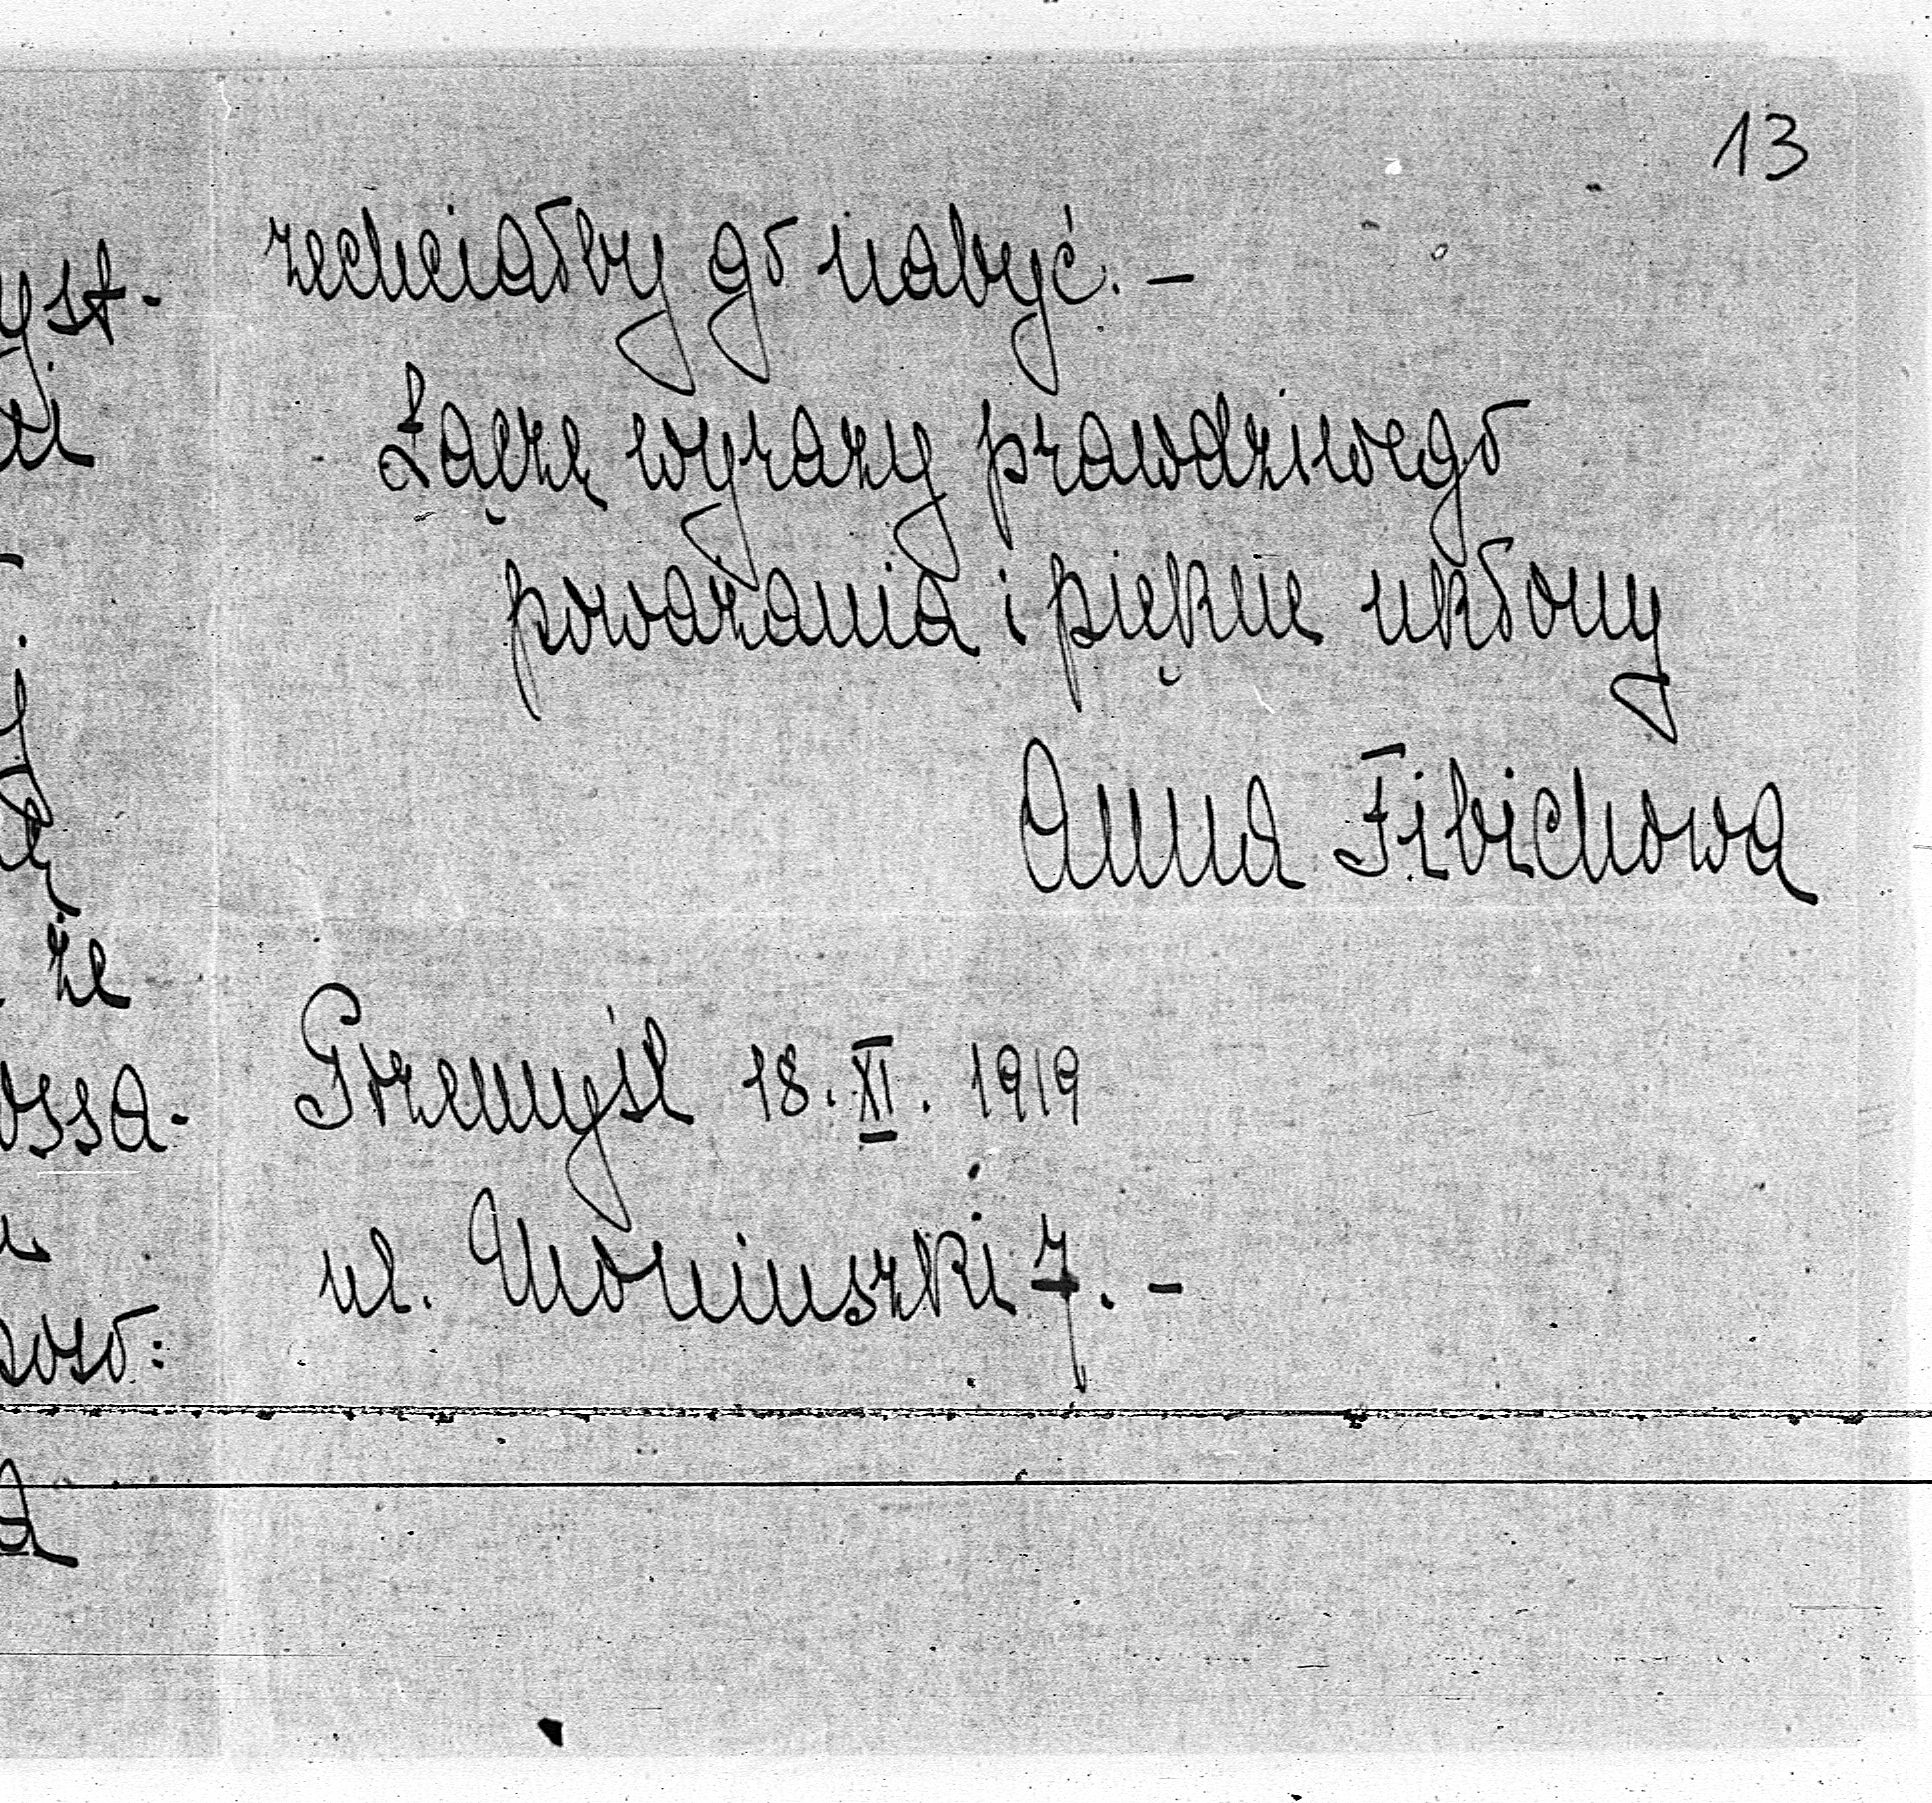 13
zechciałby go nabyć. –
Łączę wyrazy prawdziwego
poważania i piękne ukłony
Anna Fibichowa
Przemyśl 18. XI. 1919
ul. Moniuszki 7. –